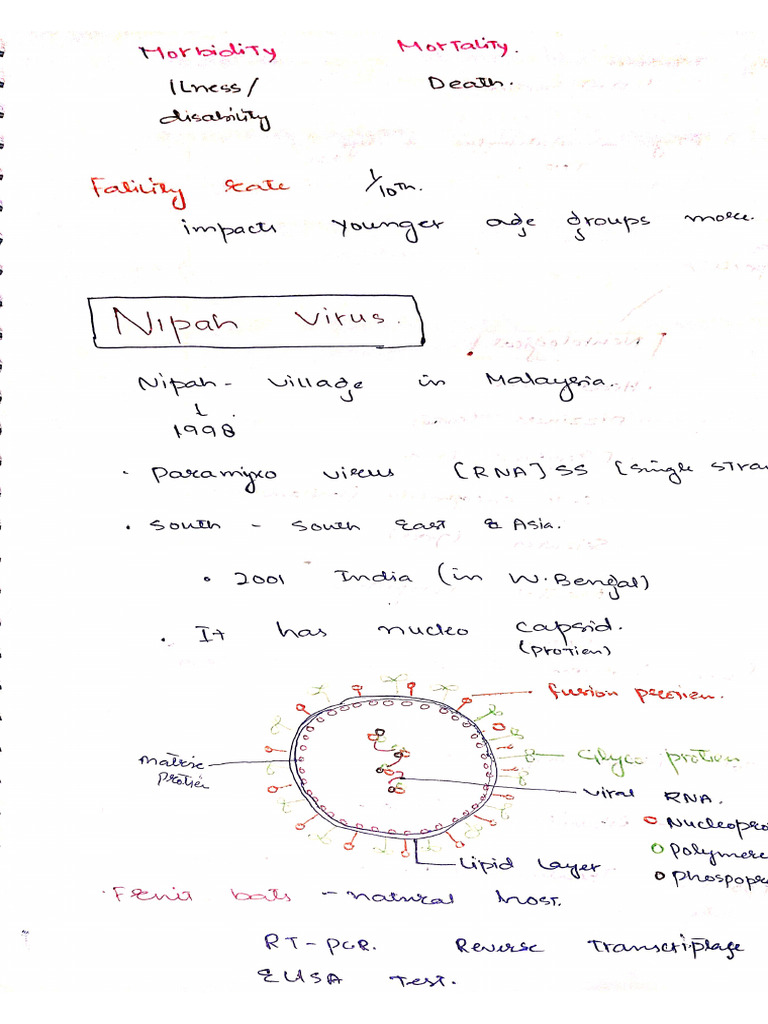 Morbidity Mortality.
Ilness/ Death.
disability
Fality rate 1/10th.
impacts younger age groups more.
Nipah Virus.
Nipah - village in Malaysia.
1998
• Paramyxo virus [RNA] SS [single stra
• South - South East & Asia.
• 2001 India (in W. Bengal)
• It has nucleo capsid.
(protien)
fusion protien.
Glyco protien
matrix
protien
viral RNA.
Nucleopro
Polymere
Phospopr
Lipid Layer
• Fruit bats - natural host.
RT-PCR. Reverse Transcriptage
ELISA Test.